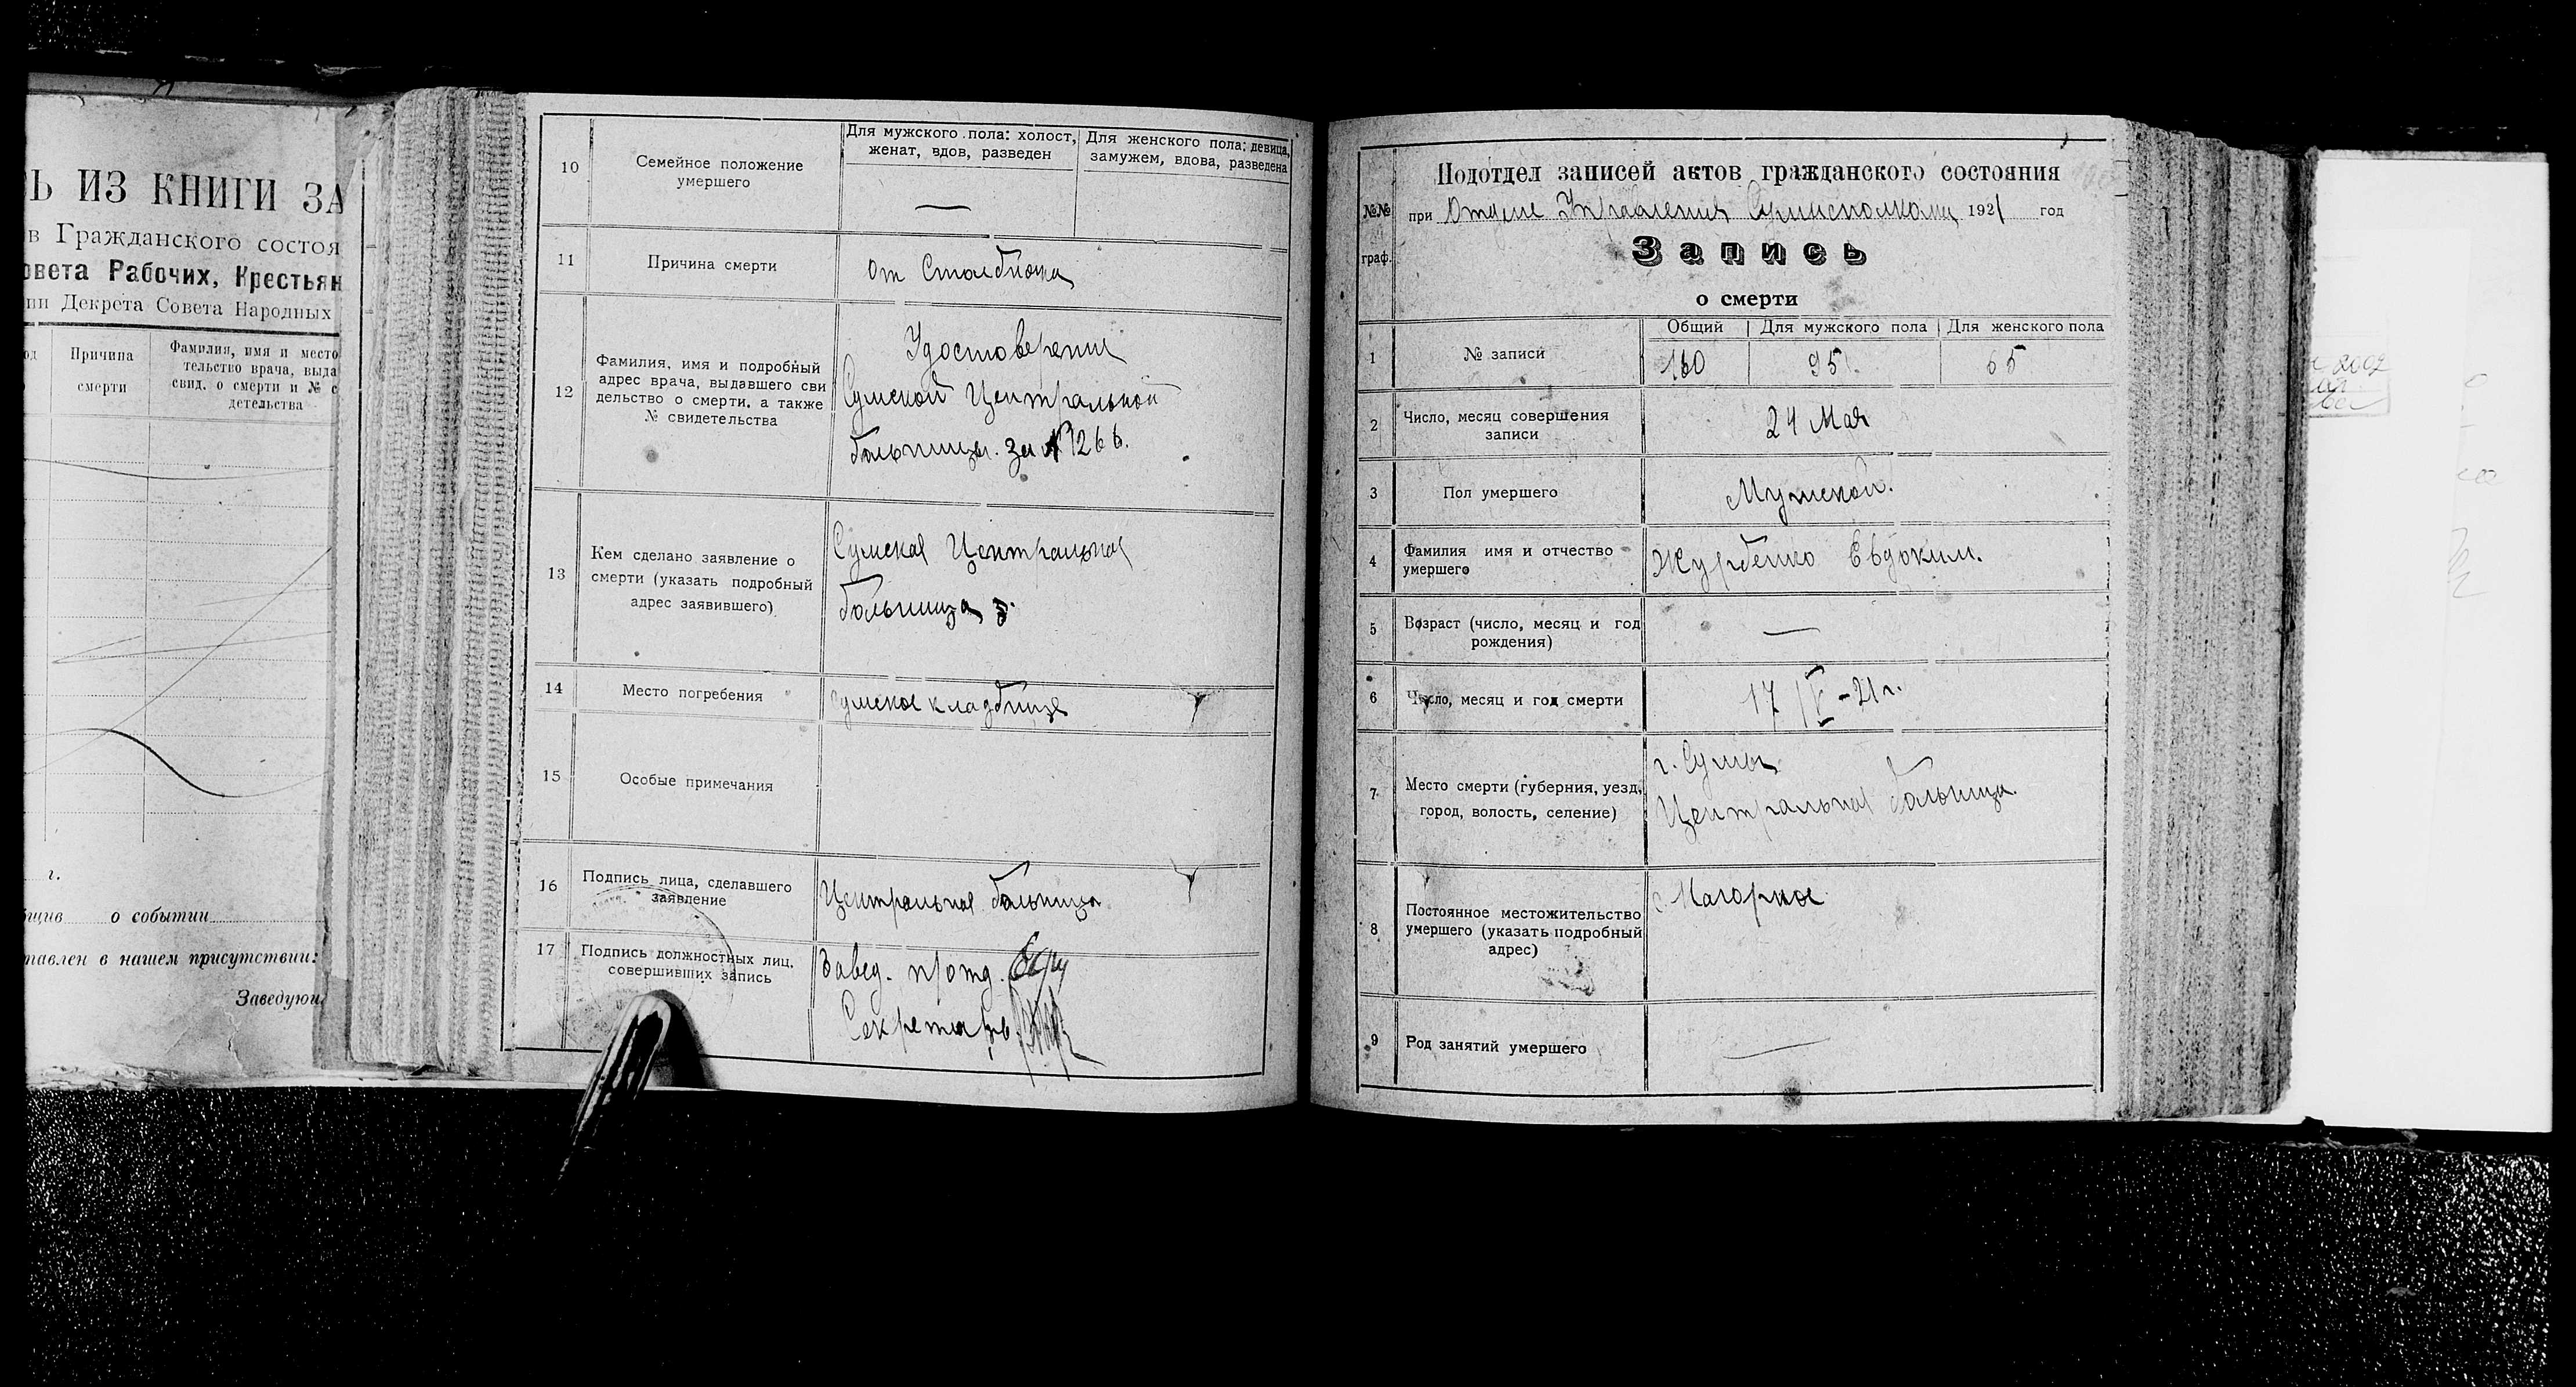 Ь ИЗ КНИГИ ЗА
в Гражданского состоя
овета Рабочих, Крестьян
ии Декрета Совета Народных
Причина
смерти
Фамилия, имя и место
тельство врача, выда
свид. о смерти и № с
детельства
г.
о событии
тавлен в нашем присутствии:
Заведующ
10
Семейное положение
умершего
Для мужского пола: холост,
женат, вдов, разведен
Для женского пола: девица,
замужем, вдова, разведена
—
11
Причина смерти
от Столбняка
12
Фамилия, имя и подробный
адрес врача, выдавшего сви
дельство о смерти, а также
№ свидетельства
Удостоверения
Сумской Центральной
больницы. за № 1266.
13
Кем сделано заявление о
смерти (указать подробный
адрес заявившего)
Сумская Центральная
больница
14
Место погребения
Сумское кладбище
15
Особые примечания
16
Подпись лица, сделавшего
заявление
Центральная больница
17
Подпись должностных лиц,
совершивших запись
Завед. п/отд.
Секретарь
№№
граф.
Подотдел записей актов гражданского состояния
при Отделе Управления Сумисполкома 1921 год
Запись
о смерти
Общий
Для мужского пола
Для женского пола
1
№ записи
160
95
65
2
Число, месяц совершения
записи
24 Мая
3
Пол умершего
Мужской.
4
Фамилия имя и отчество
умершего
Журбенко Евдоким.
5
Возраст (число, месяц и год
рождения)
—
6
Число, месяц и год смерти
17/V-21 г.
7
Место смерти (губерния, уезд,
город, волость, селение)
г. Сумы
Центральная больница.
8
Постоянное местожительство
умершего (указать подробный
адрес)
с. Нагорное
9
Род занятий умершего
—